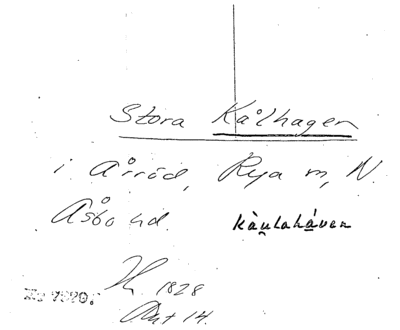 Stora Kålhagen
i Årröd, Rya m, N.
Åsbo hd. kàulaháven
1828
Akt 14.